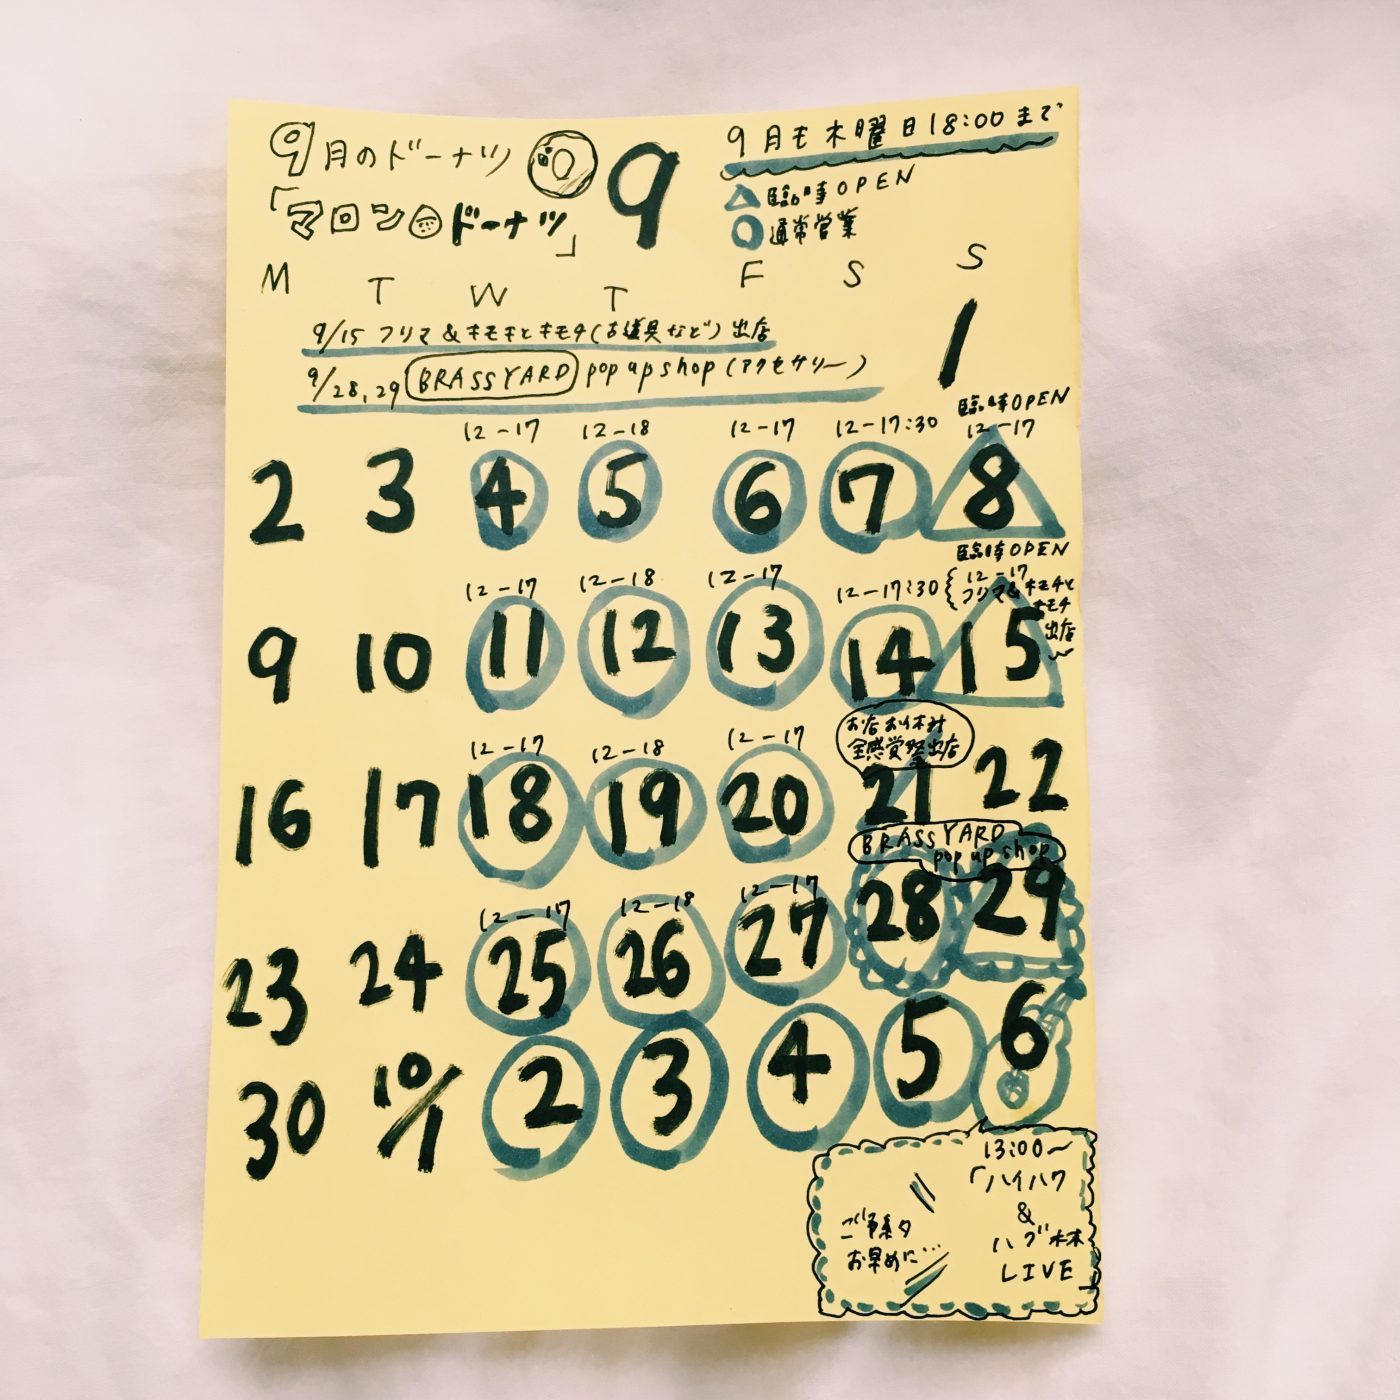 9月のドーナツ
「マロンドーナツ」
9
9月も木曜日18:00まで
臨時OPEN
通常営業
M T W T F S S
9/15 フリマ&キモチとキモチ(古道具など)出店
9/28,29 BRASSYARD pop up shop (アクセサリー)
1
臨時OPEN
12-17 12-18 12-17 12-17:30 12-17
2 3 4 5 6 7 8
臨時OPEN
12-17 12-18 12-17 12-17:30 12-17
フリマ&キモチと
キモチ
出店
9 10 11 12 13 14 15
お店お休み
全感覚祭出店
12-17 12-18 12-17
16 17 18 19 20 21 22
BRASSYARD
pop up shop
12-17 12-18 12-17
23 24 25 26 27 28 29
30 10/1 2 3 4 5 6
13:00~
「ハイハワ
&
ハグ林
LIVE
お早めに…